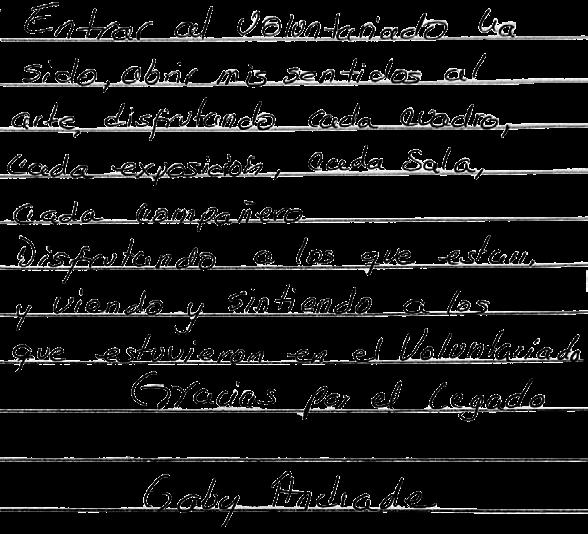 Entrar al Voluntariado ha
sido, abrir mis sentidos al
arte, disfrutando cada cuadro,
cada exposición, cada Sala,
cada compañero
Disfrutando a los que estan,
y viendo y sintiendo a los
que estuvieron en el Voluntariado
Gracias por el legado
Gaby Andrade